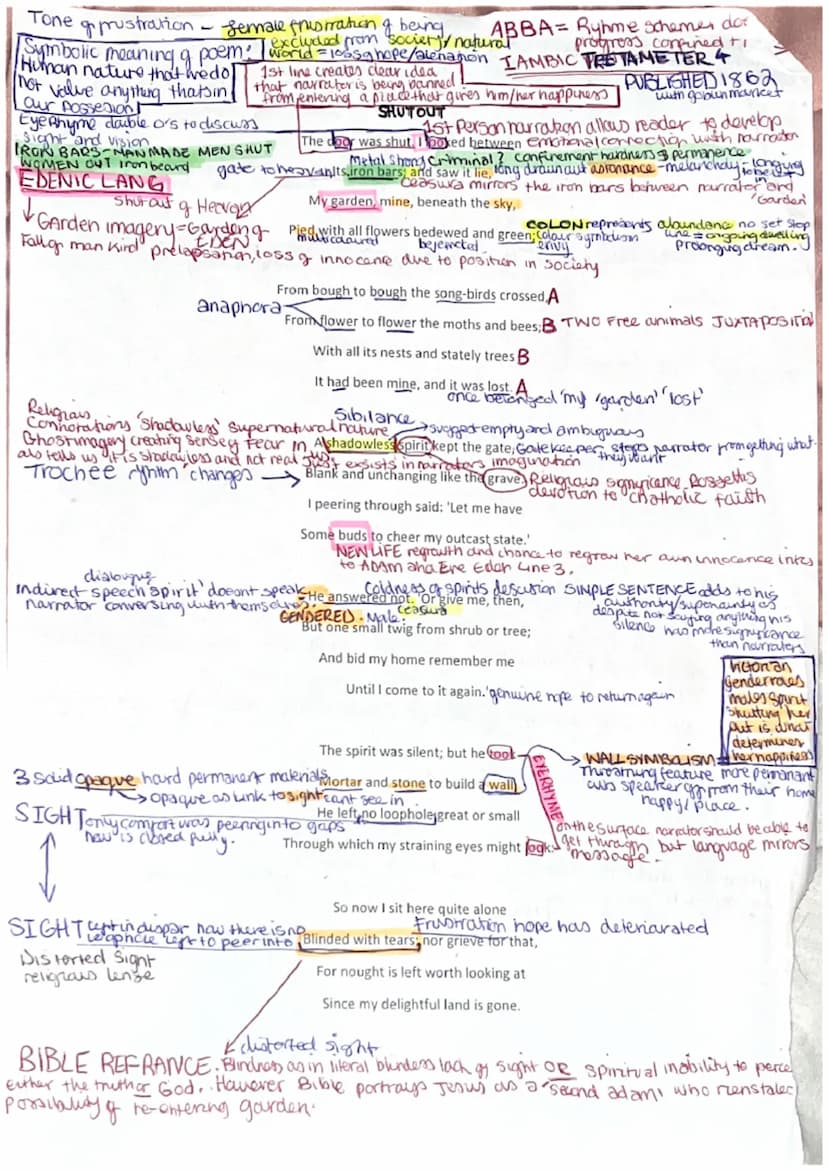 Tone of frustration - female frustration of being
excluded from society/natural
world = loss of hope/alienation
ABBA = Ryhme schemes dont
progress confined ti
IAMBIC TETAMETER 4
PUBLISHED 1862
with goblin market
Symbolic meaning of poem:
Human nature that we do
not value anything thats in
our possesion
1st line creates clear idea
that narrator is being banned
from entering a place that gives him/her happiness
SHUT OUT
Eye rhyme double o's to discuss
sight and vision
1st Person narration allows reader to develop
emotional connection with narrator
The door was shut. I looked between
IRON BARS - MAN MADE MEN SHUT
WOMEN OUT iron beard
Metal strong Criminal? confinement hardness of permanence
gate to heaven
Its iron bars; and saw it lie,
long drawn out assonance - melancholy - longing to be in 'Garden'
ceasura mirrors the iron bars between narrator and
EDENIC LANG
Shut out of Heaven
My garden, mine, beneath the sky,
GArden imagery = Garden of
EDEN
Pied with all flowers bedewed and green;
multicoloured
bejemeled
colour symbolism
envy
COLON represents abundance no set stop
line = ongoing dwelling
prolonging dream.
Fall of man kind prelapsation, loss of innocane due to position in society
From bough to bough the song-birds crossed, A
anaphora
From flower to flower the moths and bees; B TWO Free animals JUXTAPOSITION
With all its nests and stately trees B
It had been mine, and it was lost. A
once belonged 'my 'garden' 'lost'
Religious
Connotations 'Shadowless' supernatural nature
Sibilance
suggest empty and ambiguous
Ghost imagery creating sense of Fear in
A shadowless spirit kept the gate,
Gate keeper, stops narrator from getting what
they want
also tells us it is shadowless and not real Just exsists in narrators imagination
Trochee rythm, changes
Blank and unchanging like the grave.
Religious significance. Rossettis
devotion to Chatholic faith
I peering through said: 'Let me have
Some buds to cheer my outcast state.'
NEW LIFE regrowth and chance to regrow her own innocence links
to ADAM and Eve Eden Line 3.
dialougue
Indirect speech spirit' doesnt speak
narrator conversing with themselves.
Coldness of spirits descusion SIMPLE SENTENCE adds to his
authority/superiority as
despite not saying anything his
silence has more significance
than narraters
He answered not. 'Or give me, then,
GENDERED. Male.
ceasura
But one small twig from shrub or tree;
And bid my home remember me
Until I come to it again.' genuine hope to return again
Victorian
gender roles
males spirit
shutting her
out is what
determines
her happiness
The spirit was silent; but he took
EYERHYME
WALL SYMBOLISM =
Threatning feature more permanant
cuts speaker off from their home
happy/place.
3 Solid opaque hard permanent materials
Mortar and stone to build a wall;
opaque as link to sight cant see in
He left no loophole great or small
SIGHT only comfort was peering into gaps
now is closed fully.
Through which my straining eyes might look:
on the surface narrator should be able to
get through but language mirrors
message.
So now I sit here quite alone
SIGHT left in dispar now there is no
loophole left to peer into
Frustration hope has deteriarated
Blinded with tears; nor grieve for that,
Distorted Sight
religious lense
For nought is left worth looking at
Since my delightful land is gone.
distorted sight
BIBLE REFRANCE. Blindness as in literal blindess lack of sight OR spiritual inability to perce
either the truth or God. However Bible portrays Jesus as a 'second adam' who reinstates
possibility of re-entering garden.